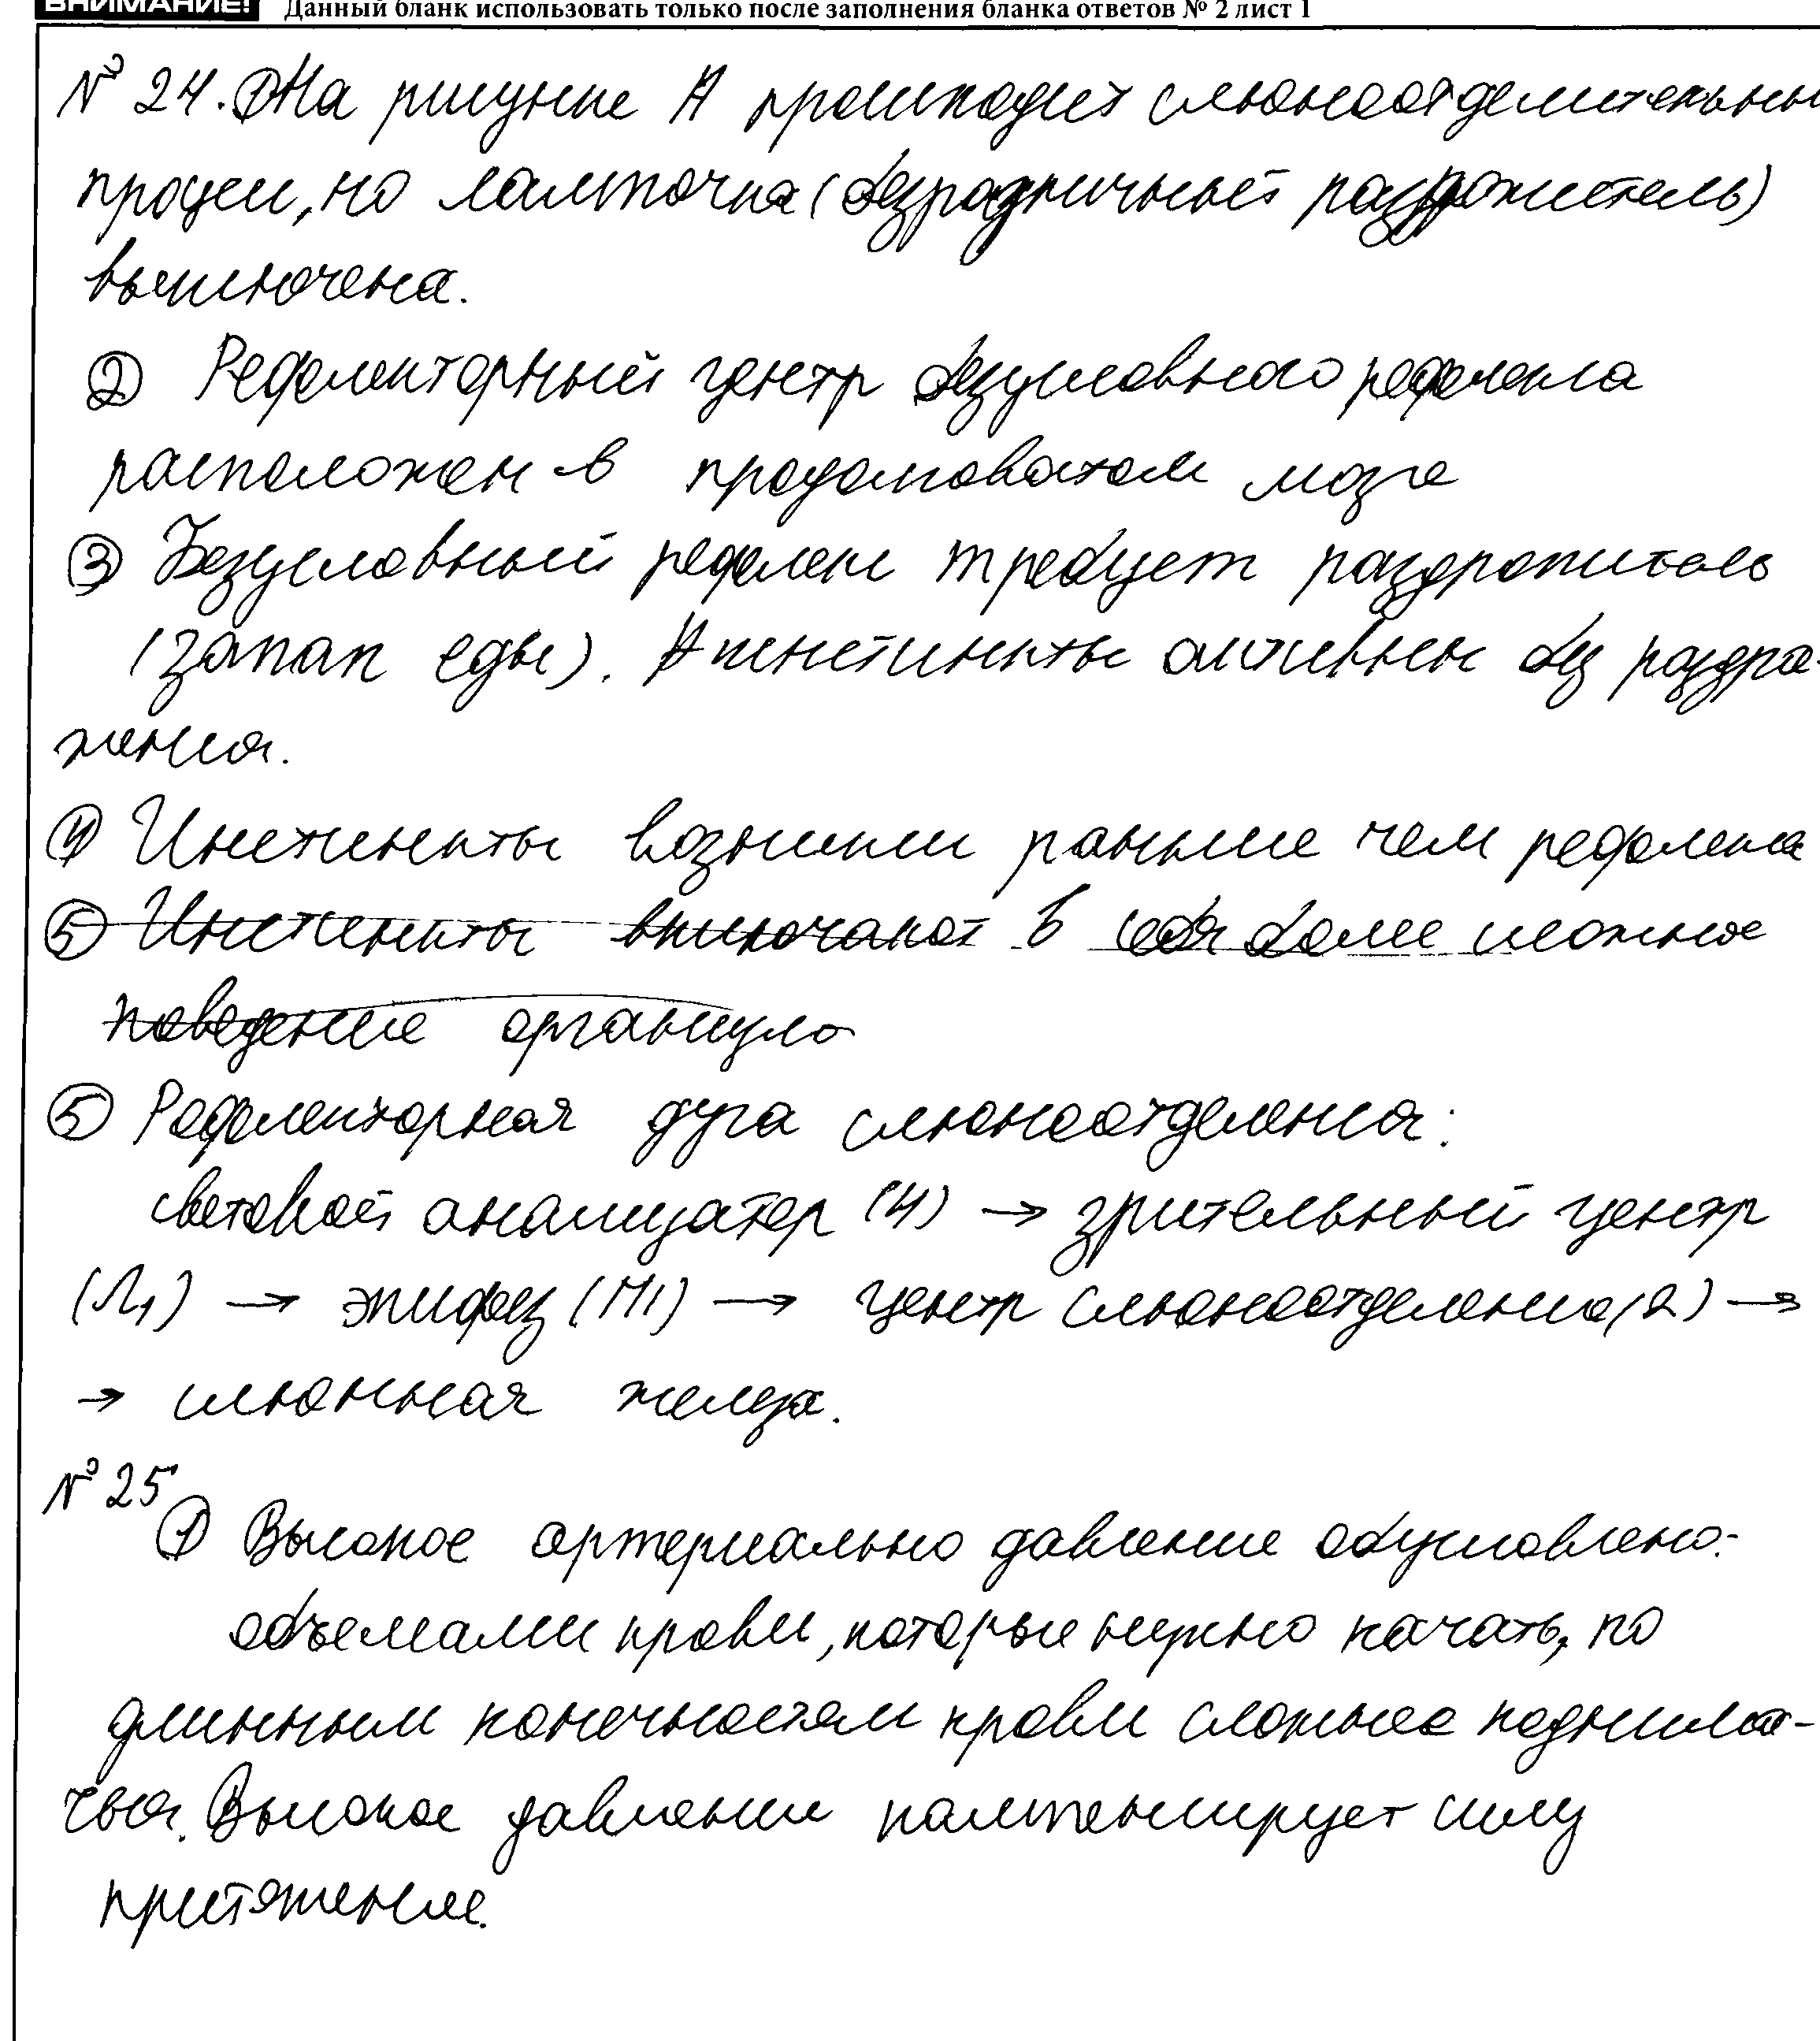 ВНИМАНИЕ! Данный бланк использовать только после заполнения бланка ответов № 2 лист 1
№ 24. ① На рисунке А происходит слюноотделительны
процесс, но лампочка (безразличный раздражитель)
выключена.
② Рефлекторный центр безусловного рефлекса
расположен в продолговатом мозге
③ Безусловный рефлекс требует раздражитель
(запах еды). Инстинкты активны без раздра-
жения.
④ Инстинкты возникли раньше чем рефлексы
⑤ Инстинкты включают в себя более сложное
поведение организма
⑤ Рефлекторная дуга слюноотделения:
световой анализатор (4) → зрительный центр
(Л1) → эпифиз (М1) → центр слюноотделения (2) →
→ слюнная железа.
№ 25
① Высокое артериально давление обусловлено:
объемами крови, которые нужно качать, по
длинным конечностям крови сложнее поднимать-
ся. Высокое давление компенсирует силу
притяжения.